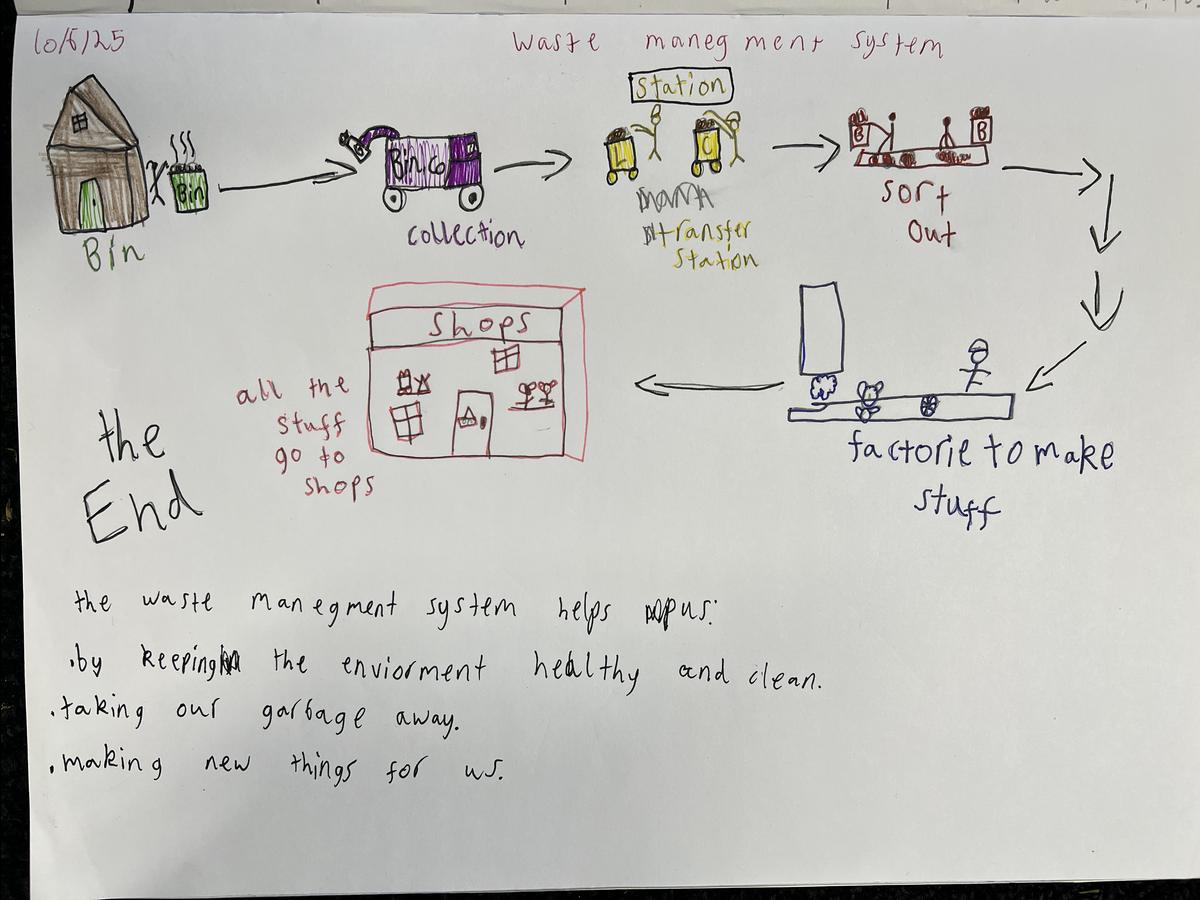 10/6/25
waste manegment system
Bin
Bin
Bin co
collection
Station
L
C
transfer
station
B
B
sort
out
factorie to make
stuff
shops
all the
stuff
go to
shops
the
End
the waste manegment system helps us:
.by keeping the enviorment healthy and clean.
.taking our garbage away.
.making new things for us.